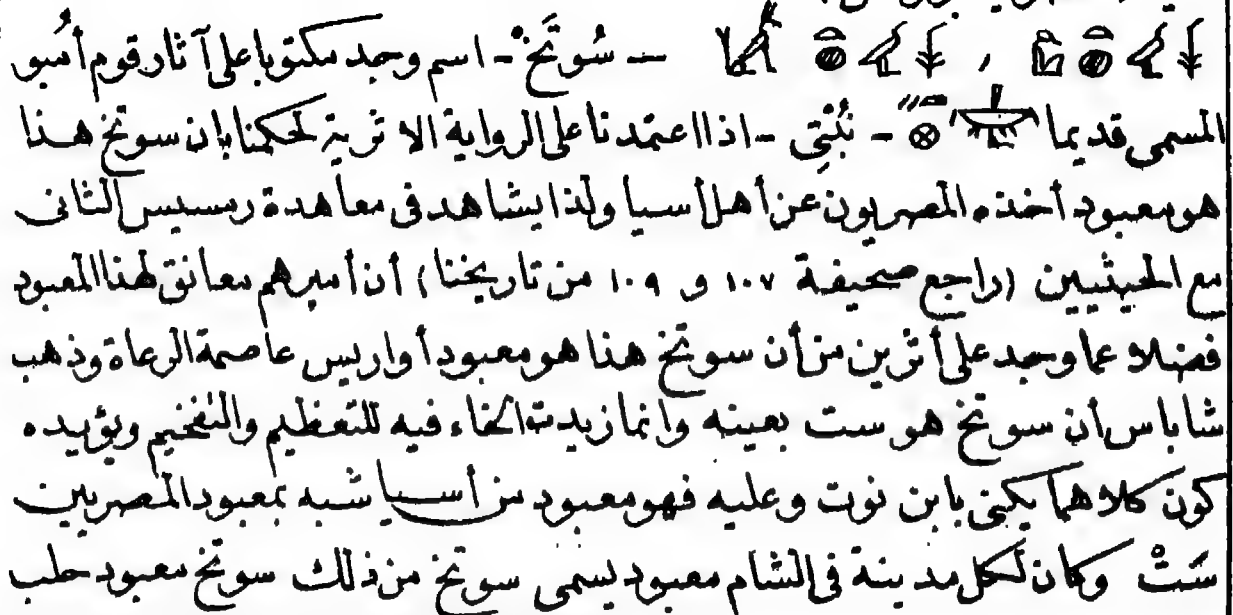 ، — سُوتَخْ - اسم وجد مكتوبا على آثار قوم أُمبو
المسمى قديما - نُبْتِى - اذا اعتمدنا على الرواية الاثرية لحكمنا بان سوتخ هذا
هو معبود أخذه المصريون عن أهل أسيا ولذا يشاهد فى معاهدة رمسيس الثانى
مع الحيثيين (راجع صحيفة ١٠٧ و ١٠٩ من تاريخنا) أن أميرهم معانق لهذا المعبود
فضلا عما وجد على أثرين من أن سوتخ هذا هو معبود أواريس عاصمة الرعاة وذهب
شاباس أن سوتخ هو ست بعينه وانما زيدت الخاء فيه للتعظيم والتفخيم ويؤيده
كون كلاهما يكنى بابن نوت وعليه فهو معبود من أسيا شبه بمعبود المصريين
سَتْ وكان لكل مدينة فى الشام معبود يسمى سوتخ من ذلك سوتخ معبود حلب